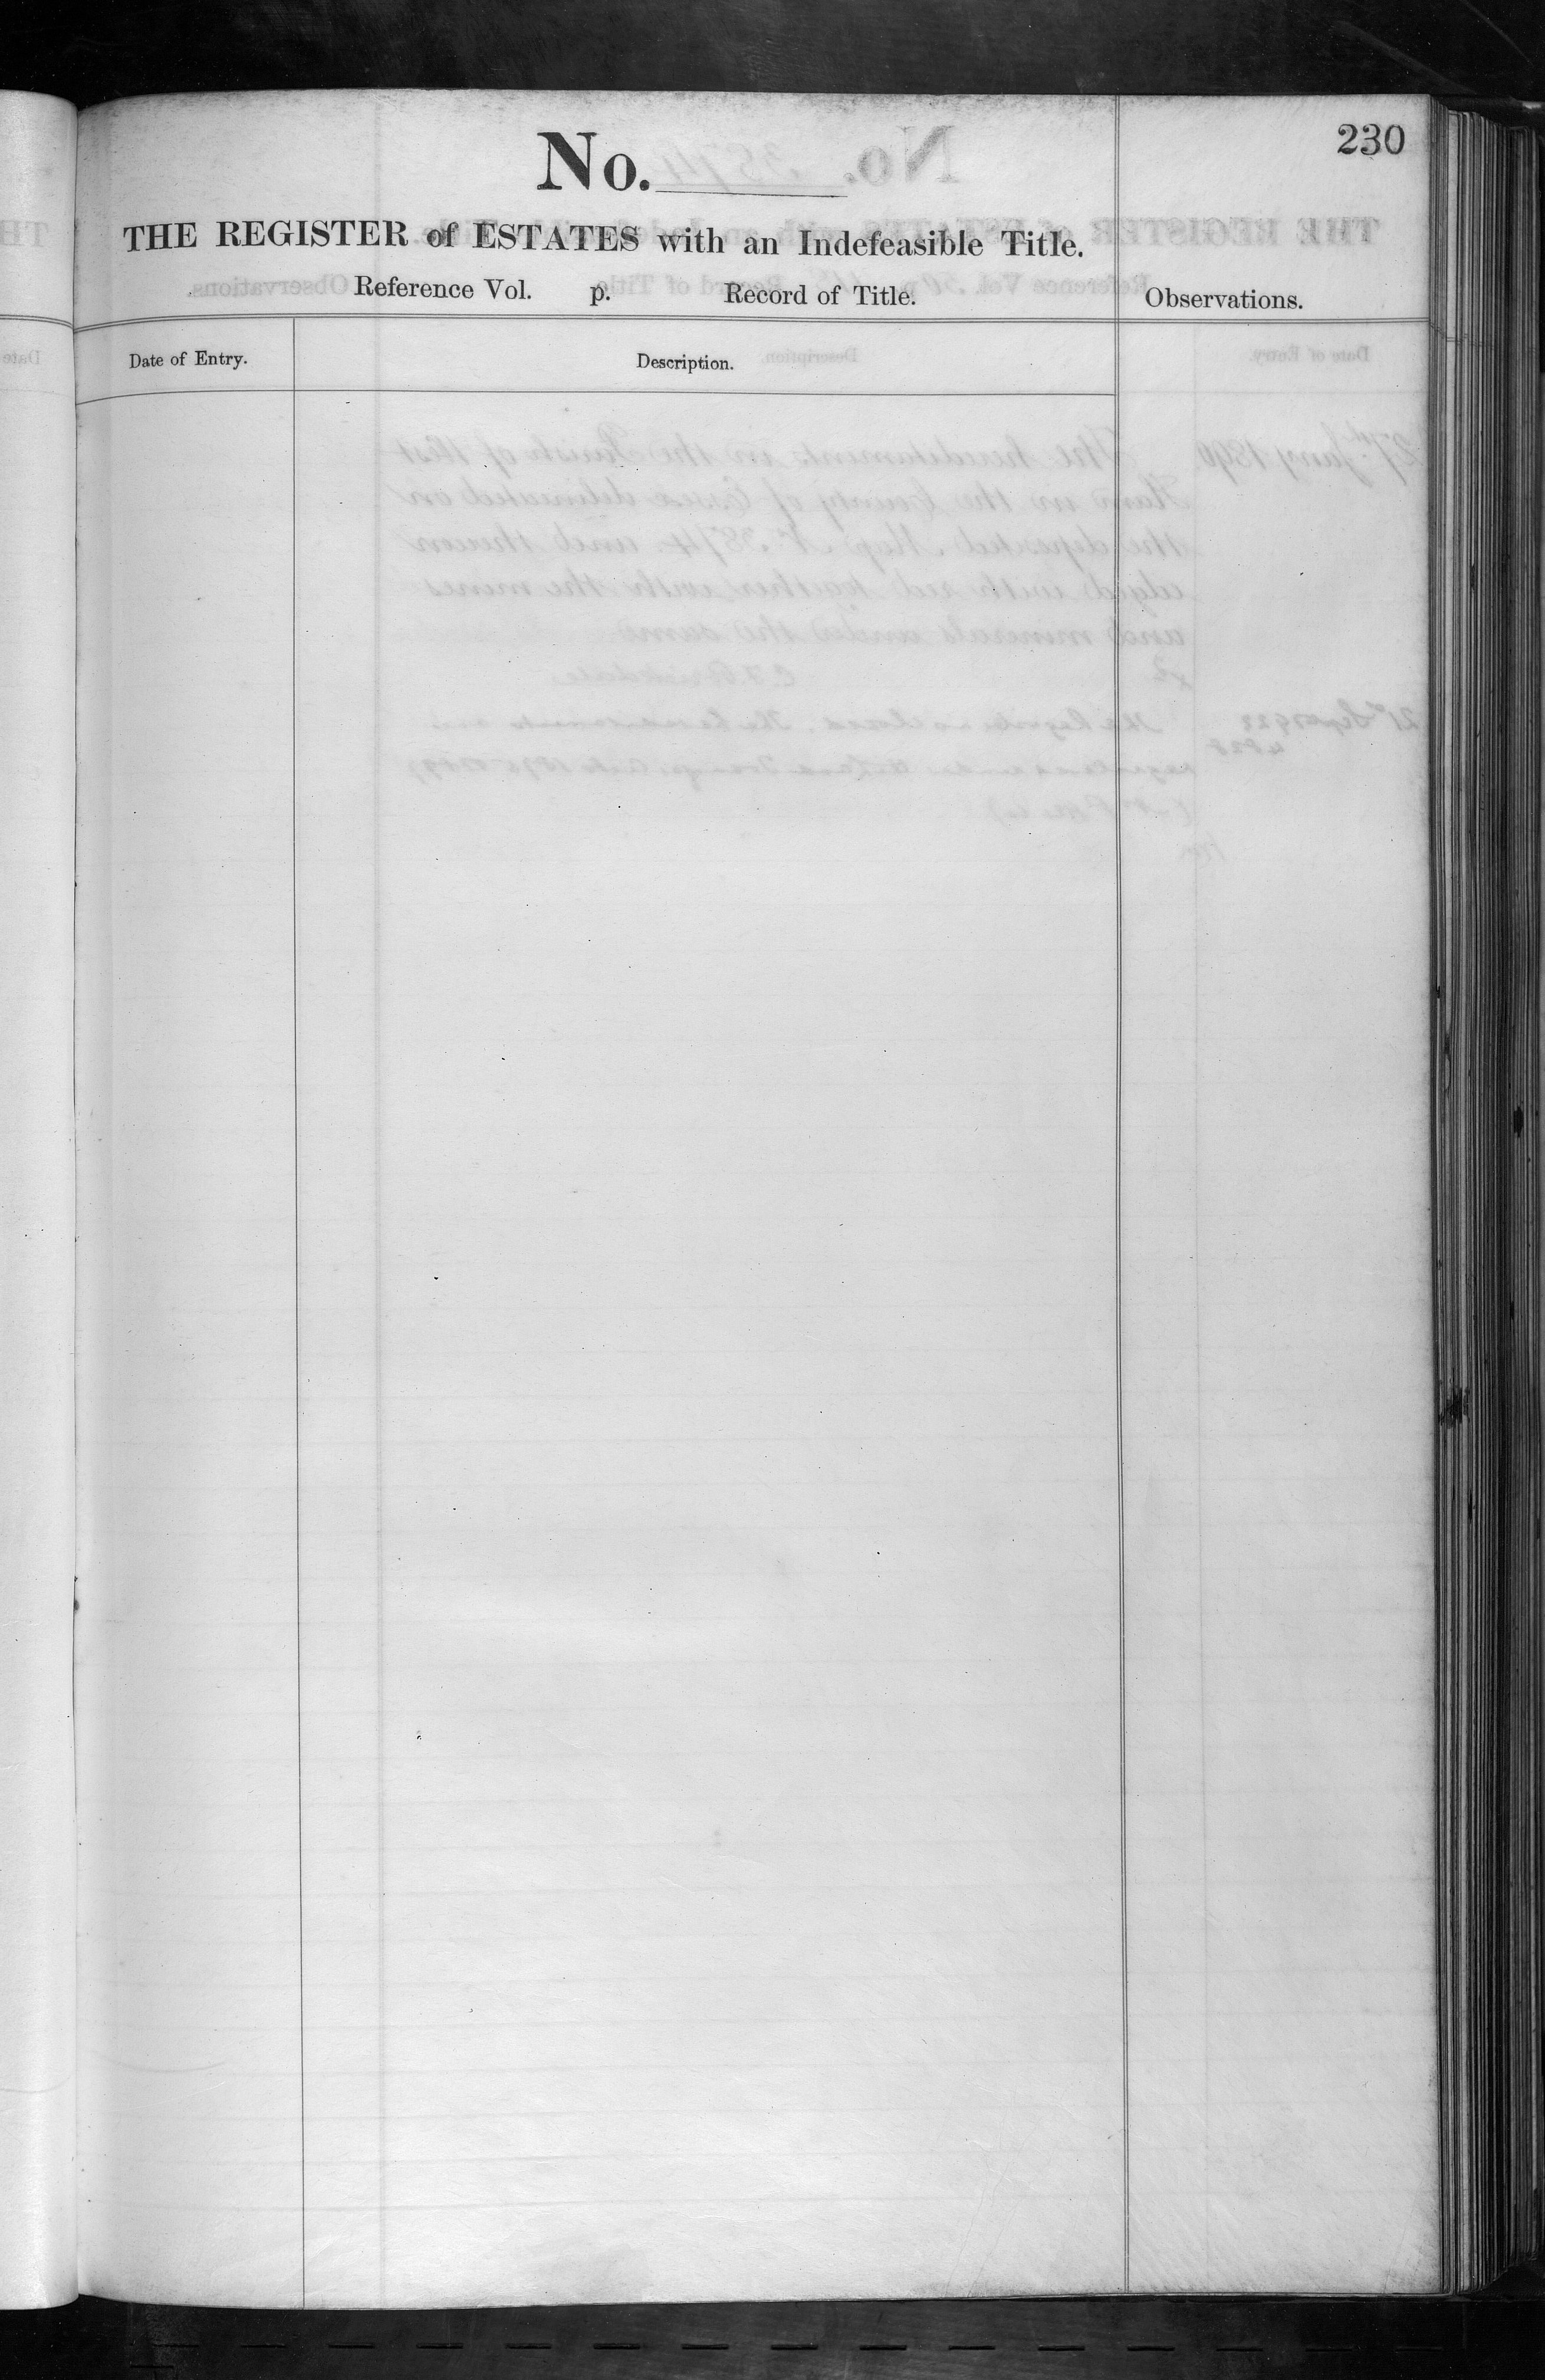 230
No.
THE REGISTER of ESTATES with an Indefeasible Title.
Reference Vol. p. Record of Title.
Observations.
Date of Entry.
Description.